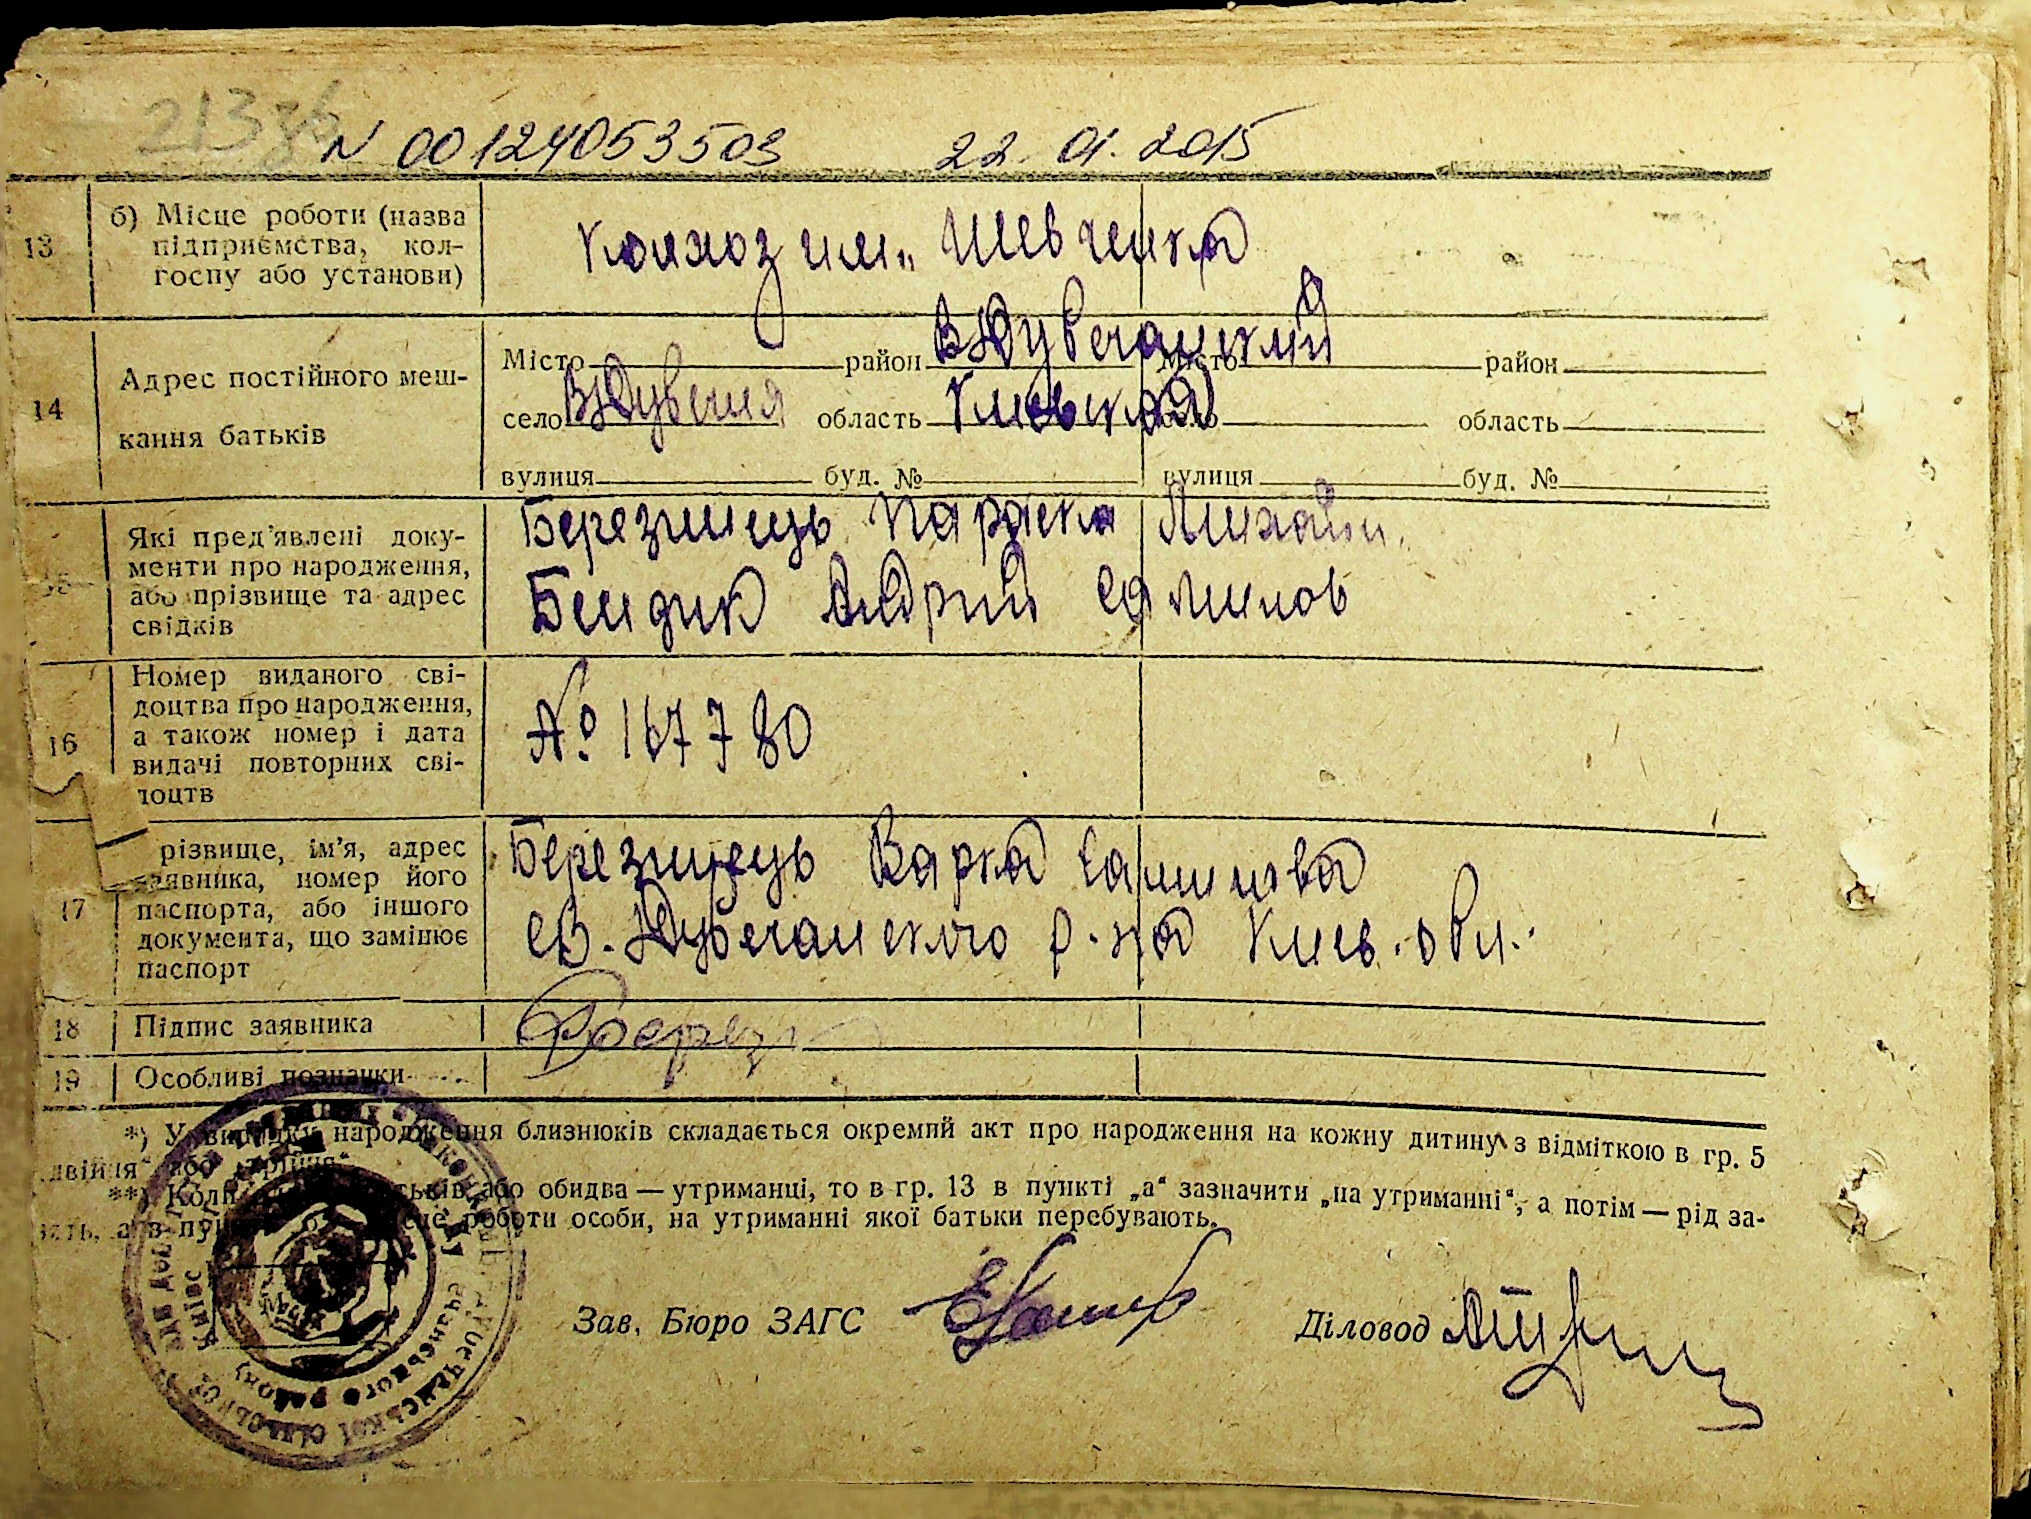 213зб
N 00124053503 22.01.2015
13 б) Місце роботи (назва підприємства, кол-
госпу або установи)
Колхоз им. Шевченка
14 Адрес постійного меш-
кання батьків
Місто район Місто район
село область Киевская село область
вулиця буд. № вулиця буд. №
15 Які пред'явлені доку-
менти про народження,
або прізвище та адрес
свідків
Березинець Параска Михайл.
Бендик Андрий
16 Номер виданого сві-
доцтва про народження,
а також номер і дата
видачі повторних сві-
доцтв
№ 167780
17 різвище, ім'я, адрес
заявника, номер його
паспорта, або іншого
документа, що замінює
паспорт
Березинець Варка
р-на Киев. обл.
18 Підпис заявника
Берез
19 Особливі познач­ки
*) У випадку народження близнюків складається окремий акт про народження на кожну дитину з відміткою в гр. 5
двійня" або "трійня".
**) Коли або обидва — утриманці, то в гр. 13 в пункті „а“ зазначити „на утриманні“, а потім — рід за-
роботи особи, на утриманні якої батьки перебувають.
Зав. Бюро ЗАГС Діловод